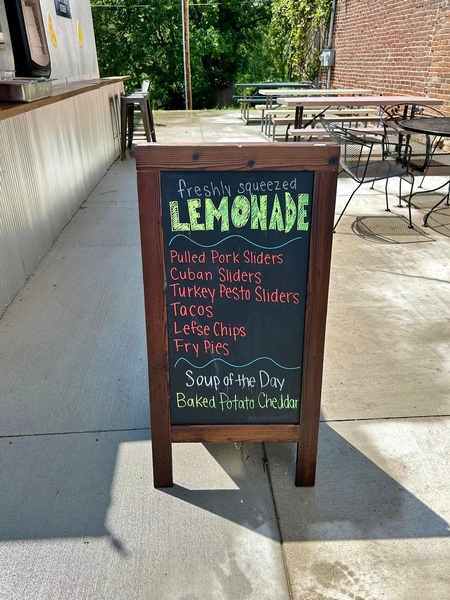 freshly squeezed
LEMONADE
Pulled Pork Sliders
Cuban Sliders
Turkey Pesto Sliders
Tacos
Lefse Chips
Fry Pies
Soup of the Day
Baked Potato Cheddar